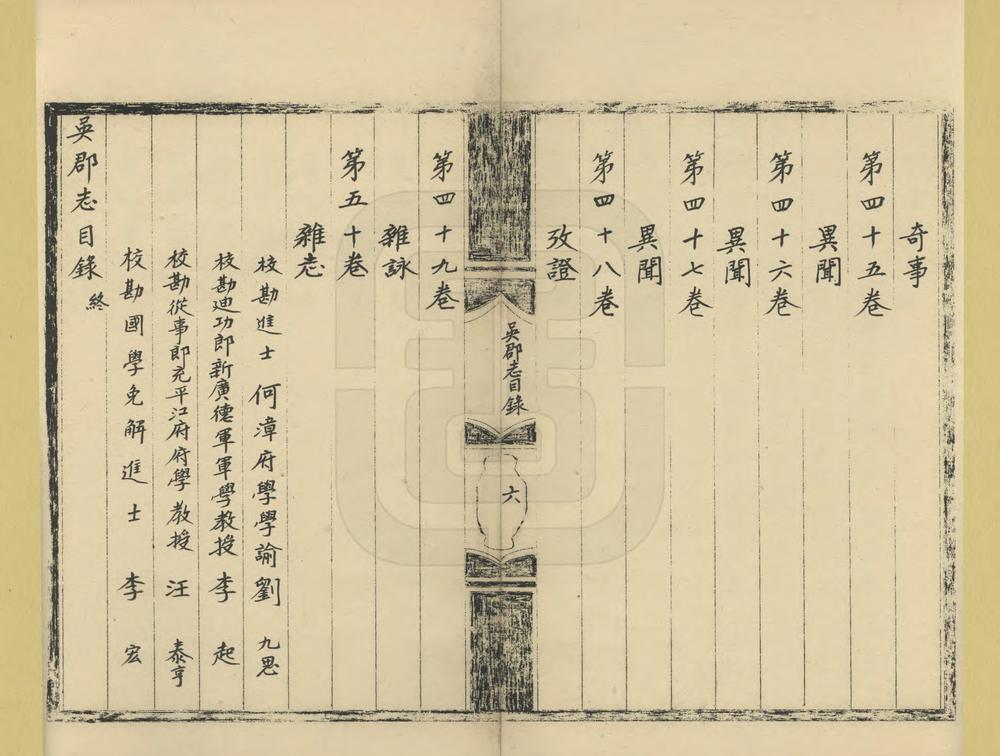 奇事
第四十五卷
異聞
第四十六卷
異聞
第四十七卷
異聞
第四十八卷
攷證
吳郡志目錄
六
第四十九卷
雜詠
第五十卷
雜志
校勘進士何漳府學學諭劉九思
校勘迪功郎新廣德軍軍學教授李起
校勘從事郎充平江府府學教授汪泰亨
校勘國學免解進士李宏
吳郡志目錄終